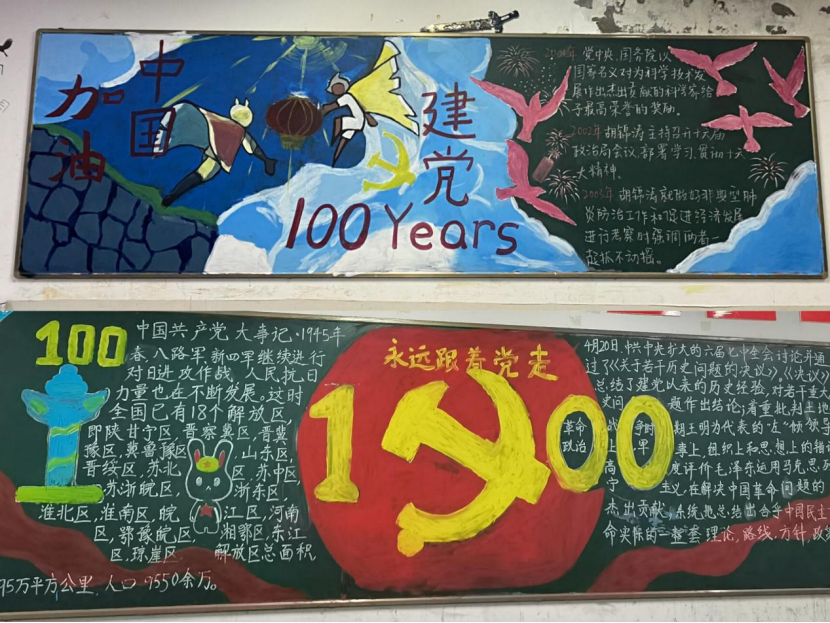 中国
加油
建党
100 Years
党中央、国务院以
国家名义对为科学技术发
展作出杰出贡献的科学家给
予最高荣誉的奖励。
2002年 胡锦涛主持召开十六届
政治局会议,部署学习、贯彻十六
大精神。
2003年 胡锦涛就做好非典型肺
炎防治工作和促进经济发展
进行考察时强调两者
都抓不动摇。
100
中国共产党大事记·1945年
春,八路军,新四军继续进行
对日进攻作战,人民抗日
力量也在不断发展。这时
全国已有18个解放区,
即陕甘宁区,晋察冀区,晋冀
豫区,冀鲁豫区,山东区,
晋绥区,苏北区,苏中区,
苏浙皖区,浙东区,
淮北区,淮南区,皖江区,河南
区,鄂豫皖区,湘鄂区,东江
区,琼崖区,解放区总面积
95万平方公里,人口9550余万。
永远跟着党走
100
革命
政治
4月20日,中共中央扩大的六届七中全会讨论并通
过了《关于若干历史问题的决议》。《决议》
总结了建党以来的历史经验,对若干重大
史问题作出结论;着重批判土地
战争时期王明为代表的"左"倾领导
上、军事上,组织上和思想上的错误
高度评价毛泽东运用马克思列
宁主义,在解决中国革命问题的
杰出贡献,系统地总结出合乎中国民主
命实际的一整套理论,路线,方针,政策